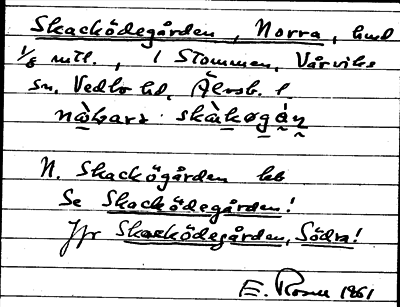 Skacködegården, Norra, hmd
1/8 mtl., 1 Stommen, Vårviks
sn, Vedbo hd, Älvsb. l
nò̱barz skà̱køgá̱n̰
N. Skackögården beb
Se Skacködegården!
Jfr Skacködegården, Södra!
E. Rosell 1961